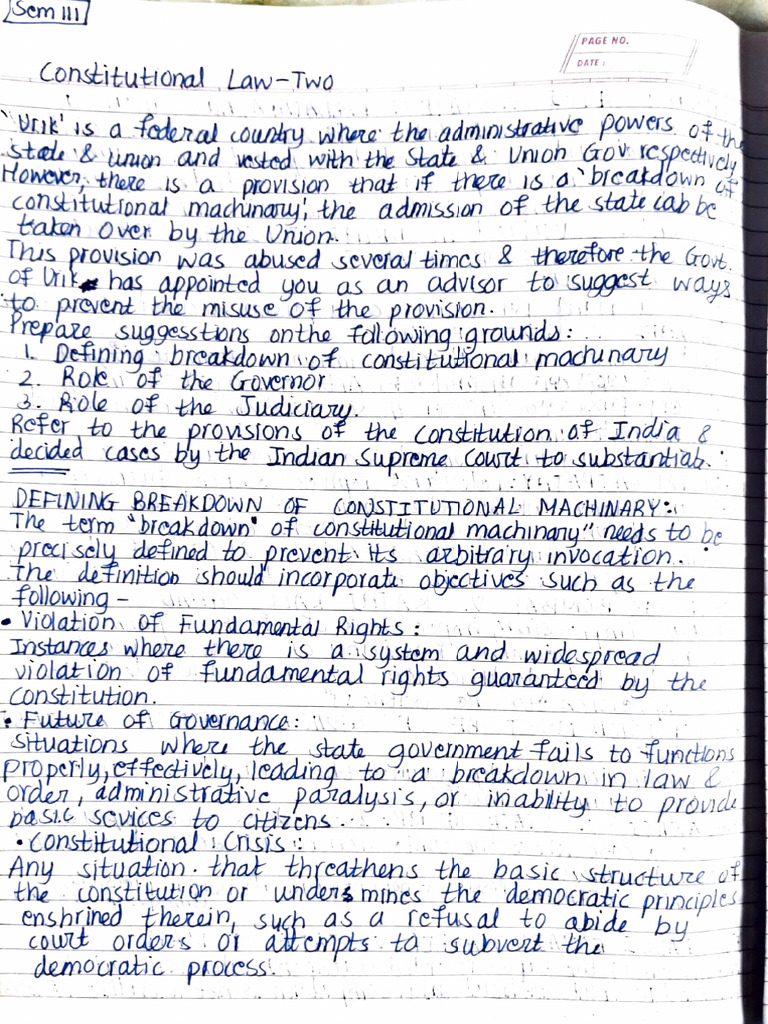 Sem III
PAGE NO.
DATE:
Constitutional Law-Two
'Urik' is a federal country where the administrative powers of the
state & union and vested with the State & Union Gov respectively
However, there is a provision that if there is a 'breakdown of
constitutional machinary', the admission of the state cab be
taken over by the Union.
This provision was abused several times & therefore the Govt.
of Urik has appointed you as an advisor to suggest ways
to prevent the misuse of the provision.
Prepare suggesstions onthe following grounds:
1. Defining breakdown of constitutional machunary
2. Role of the Governor
3. Role of the Judiciary.
Refer to the provisions of the constitution of India &
decided cases by the Indian Supreme Court to substantiab.
DEFINING BREAKDOWN OF CONSTITUTIONAL MACHINARY:
The term "breakdown" of constitutional machinary" needs to be
precisely defined to prevent its arbitrary invocation.
the definition should incorporate objectives such as the
following -
• Violation of Fundamental Rights:
Instances where there is a system and widespread
violation of fundamental rights guaranteed by the
constitution.
• Future of Governance:
situations where the state government fails to functions
properly, effectively, leading to a breakdown in law &
order, administrative paralysis, or inability to provide
basic sevices to citizens.
• Constitutional Crisis:
Any situation that threathens the basic structure of
the constitution or undersmines the democratic principles
enshrined therein, such as a refusal to abide by
court orders or attempts to subvert the
democratic process.